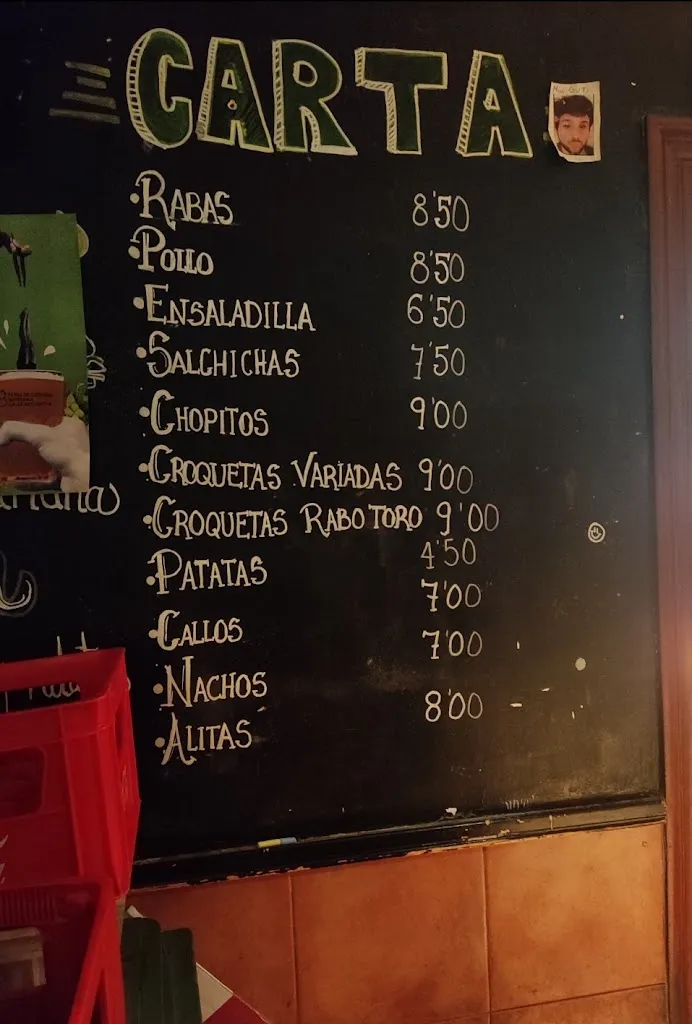 CARTA
•RABAS 8'50
•POLLO 8'50
•ENSALADILLA 6'50
•SALCHICHAS 7'50
•CHOPITOS 9'00
•CROQUETAS VARIADAS 9'00
•CROQUETAS RABO TORO 9'00
•PATATAS 4'50
•CALLOS 7'00
•NACHOS 7'00
•ALITAS 8'00